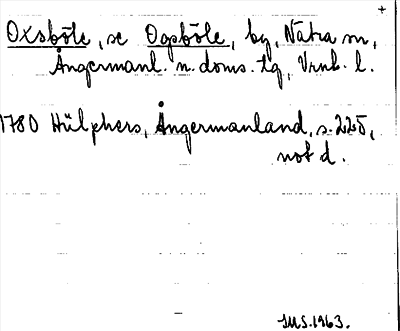 +
Oxsböle, se Ogsböle, by, Nätra sn,
Ångermanl. n. doms. tg, Vrnl. l.
1780 Hülphers, Ångermanland, s. 225,
not d.
IMS. 1963.